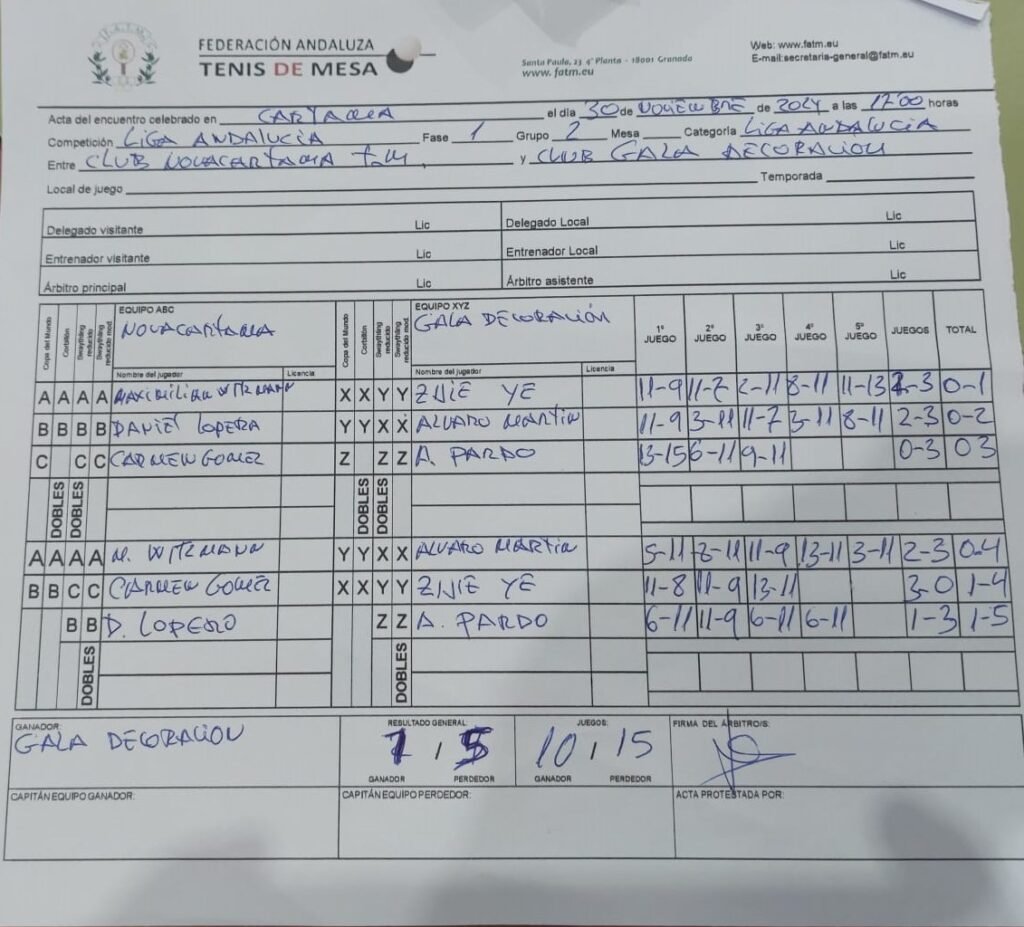 FEDERACIÓN ANDALUZA
TENIS DE MESA
Santa Paula, 23 4ª Planta - 18001 Granada
www. fatm.eu
Web: www.fatm.eu
E-mail:secretaria-general@fatm.eu
Acta del encuentro celebrado en CARTAMA el día 30 de NOVIEMBRE de 2024 a las 17'00 horas
Competición LIGA ANDALUCIA Fase 1 Grupo 2 Mesa Categoría LIGA ANDALUCIA
Entre CLUB NOVACARTAMA T.M, y CLUB GALA DECORACION
Local de juego Temporada
Delegado visitante Lic Delegado Local Lic
Entrenador visitante Lic Entrenador Local Lic
Árbitro principal Lic Árbitro asistente Lic
Copa del Mundo Corbillón Swaythling reducido Swaythling reducido mod. EQUIPO ABC Copa del Mundo Corbillón Swaythling reducido Swaythling reducido mod. EQUIPO XYZ
NOVACARTAMA GALA DECORACIÓN 1º JUEGO 2º JUEGO 3º JUEGO 4º JUEGO 5º JUEGO JUEGOS TOTAL
Nombre del jugador Licencia Nombre del jugador Licencia
A A A A MAXIMILIAN WITZMANN X X Y Y ZIJIE YE 11-9 11-7 2-11 8-11 11-13 2-3 0-1
B B B B DANIEL LOPERA Y Y X X ALVARO MARTIN 11-9 3-11 11-7 3-11 8-11 2-3 0-2
C C C CARMEN GOMEZ Z Z Z A. PARDO 13-15 6-11 9-11 0-3 0 3
DOBLES DOBLES DOBLES DOBLES
A A A A M. WITZMANN Y Y X X ALVARO MARTIN 5-11 8-11 11-9 13-11 3-11 2-3 0-4
B B C C CARMEN GOMEZ X X Y Y ZIJIE YE 11-8 11-9 13-11 3-0 1-4
B B D. LOPERO Z Z A. PARDO 6-11 11-9 6-11 6-11 1-3 1-5
DOBLES DOBLES
GANADOR: RESULTADO GENERAL: JUEGOS: FIRMA DEL ÁRBITRO/S:
GALA DECORACION 1 / 5 10 / 15
GANADOR PERDEDOR GANADOR PERDEDOR
CAPITÁN EQUIPO GANADOR: CAPITÁN EQUIPO PERDEDOR: ACTA PROTESTADA POR: